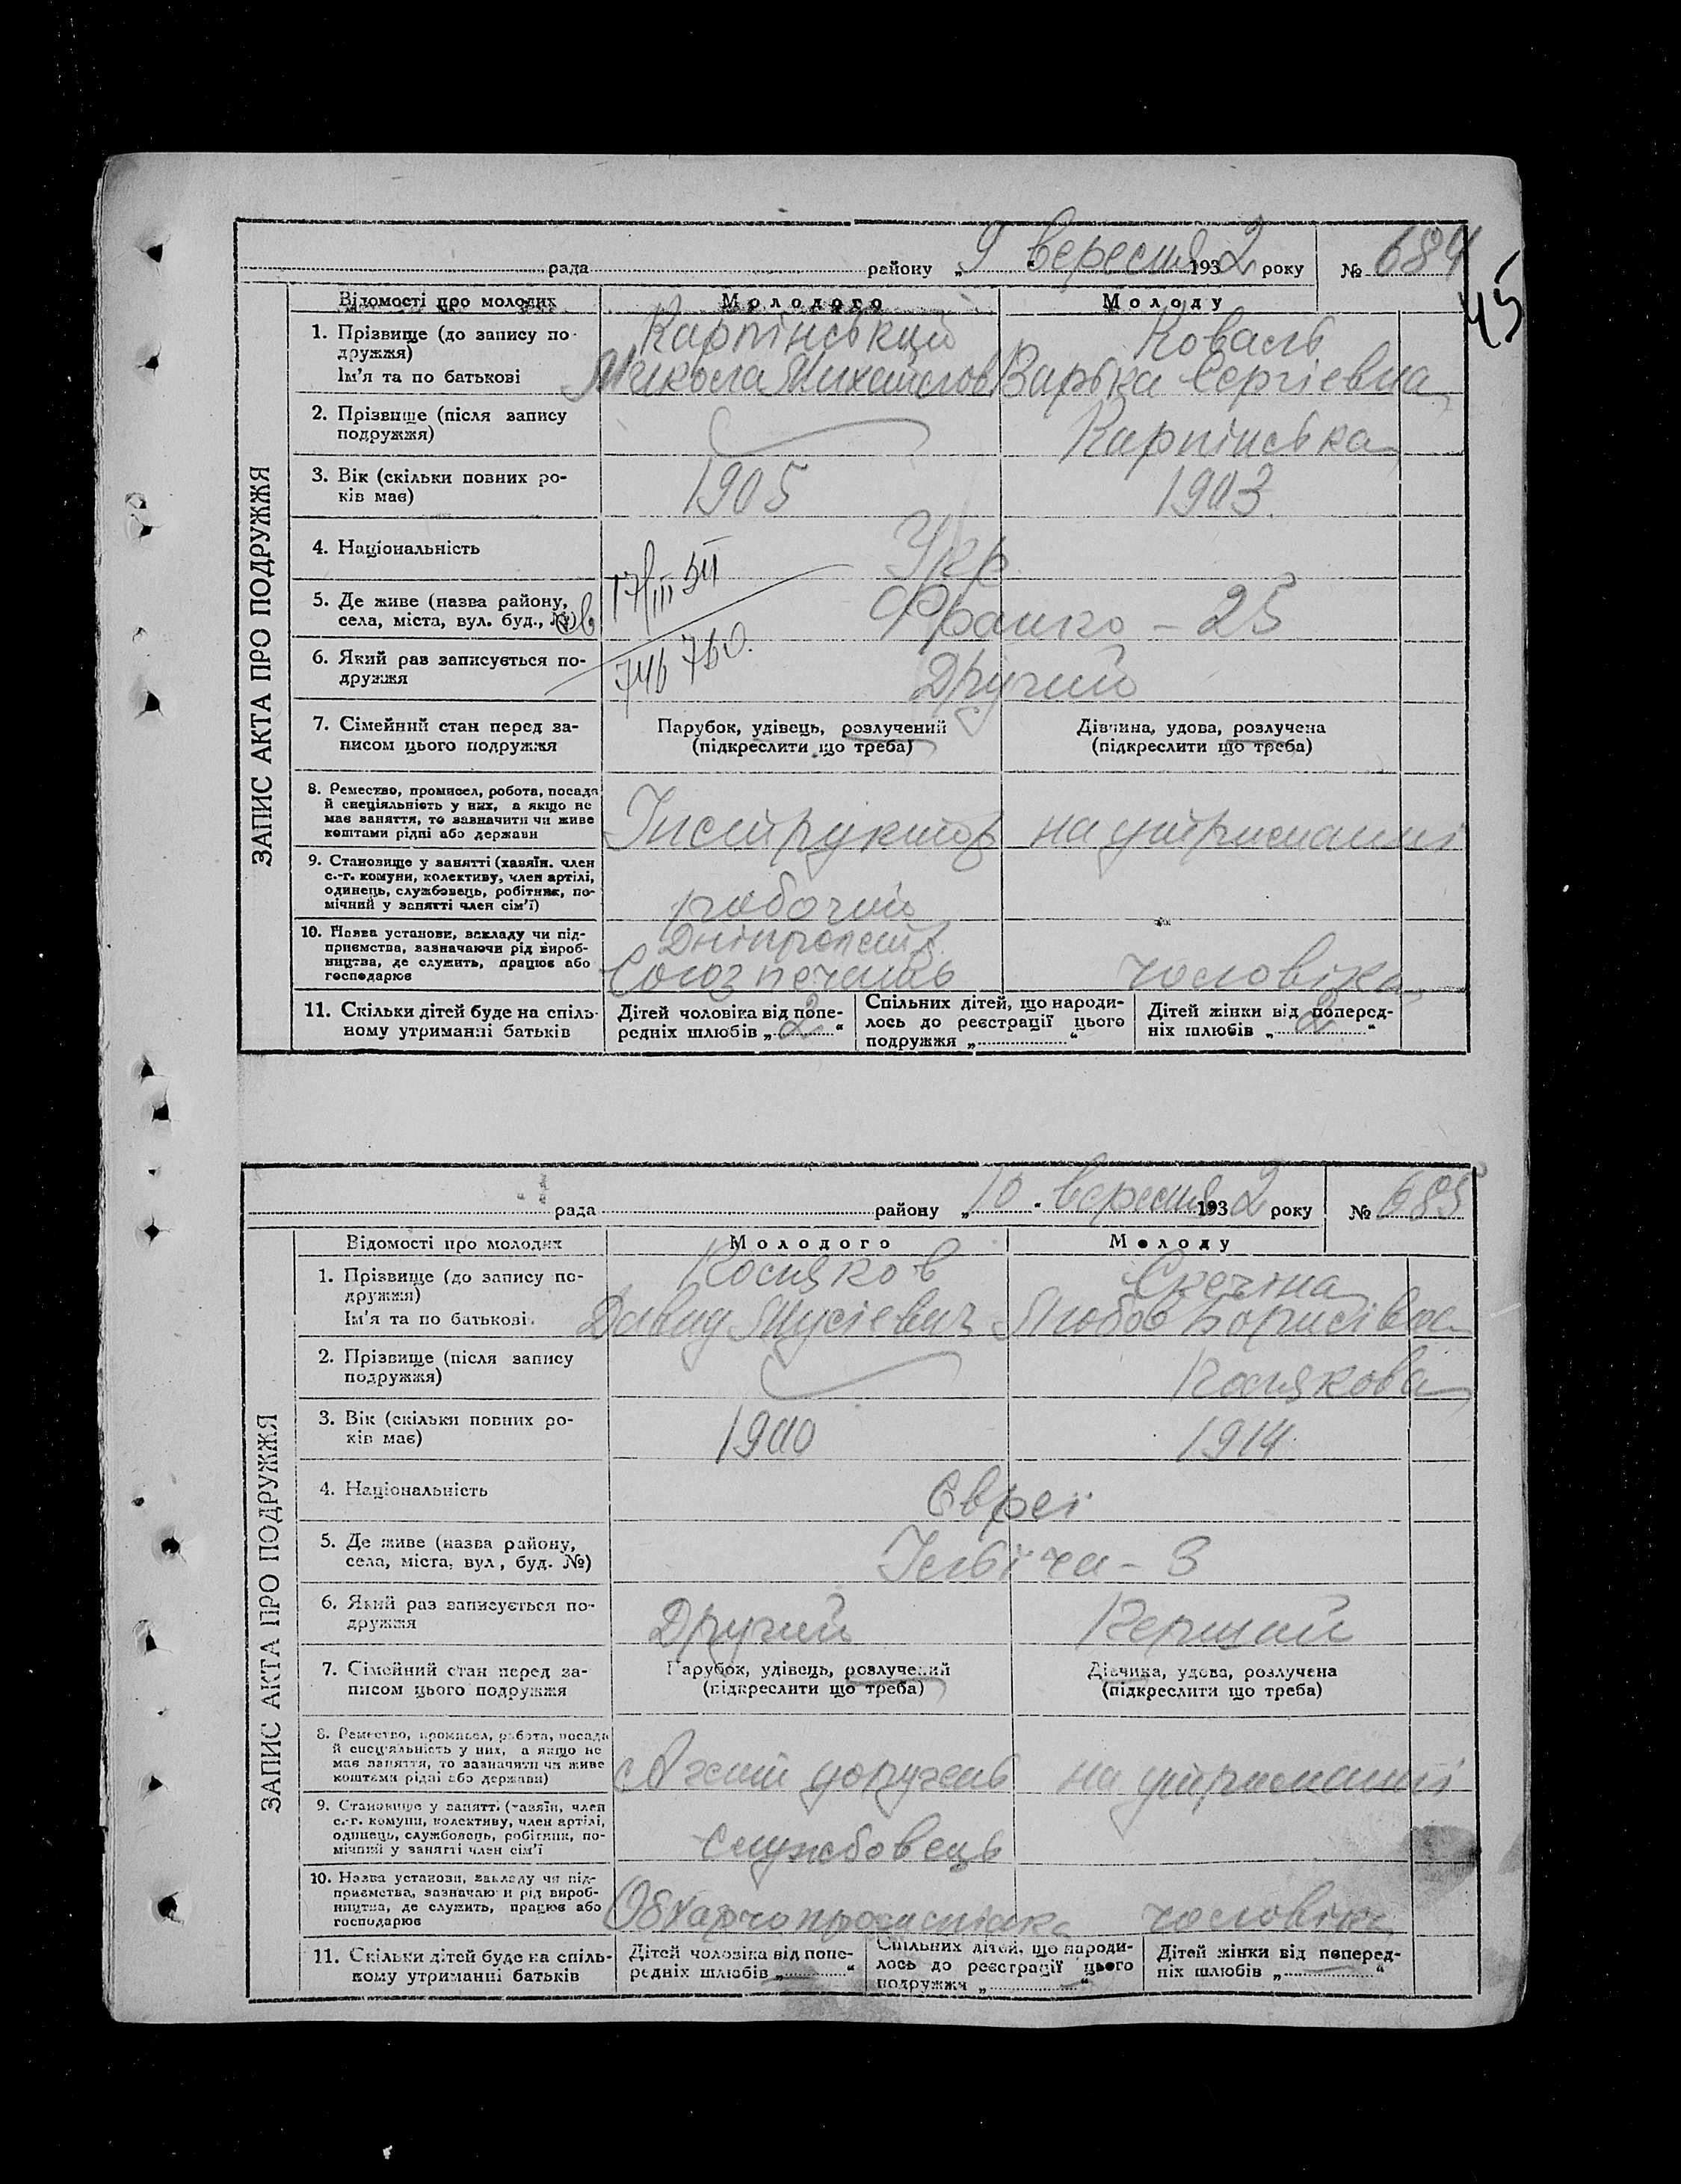 рада району „ 9 „ вересня 1932 року № 684
45
ЗАПИС АКТА ПРО ПОДРУЖЖЯ
Відомості про молодих Молодого Молоду
1. Прізвище (до запису по- Карпінський Коваль
дружжя)
Ім'я та по батькові Микола Михайлов Варька Сергіевна
2. Прізвище (після запису
подружжя) Карпінська
3. Вік (скільки повних ро- 1905 1903.
ків має)
4. Національність Укр.
5. Де живе (назва району, 17/III 5II
села, міста, вул. буд., №) Франко – 25
6. Який раз записується по- 746 760. Другий
дружжя
7. Сімейний стан перед за- Парубок, удівець, розлучений Дівчина, удова, розлучена
писом цього подружжя (підкреслити що треба) (підкреслити що треба)
8. Ремество, промисел, робота, посада
й спеціяльність у них, а якщо не
має заняття, то зазначити чи живе Інструктор на утриманні
коштами рідні або держави
9. Становище у занятті (хазяїн. член
с.-г. комуни, колективу, член артілі,
одинець, службовець, робітник, по- робочий
мічний у занятті член сім'ї)
10. Назва установи, закладу чи під- Дніпропетр.
приємства, зазначаючи рід вироб-
ництва, де служить, працює або Союзпечать чоловіка
господарює
11. Скільки дітей буде на спіль- Дітей чоловіка від попе- Спільних дітей, що народи- Дітей жінки від поперед-
ному утриманні батьків редніх шлюбів „ 2 “ лось до реєстрації цього ніх шлюбів „ 2 “
подружжя „ “
рада району „ 10 “ вересня 1932 року № 685
ЗАПИС АКТА ПРО ПОДРУЖЖЯ
Відомості про молодих Молодого Молоду
1. Прізвище (до запису по- Косяков Скечіна
дружжя)
Ім'я та по батькові Давид Мусієвич Любов Борисівна
2. Прізвище (після запису
подружжя) Косякова
3. Вік (скільки повних ро- 1900 1914
ків має)
4. Національність Євреї
5. Де живе (назва району,
села, міста, вул, буд. №) Ілліча – 3
6. Який раз записується по- Другий Перший
дружжя
7. Сімейний стан перед за- Парубок, удівець, розлучений Дівчина, удова, розлучена
писом цього подружжя (підкреслити що треба) (підкреслити що треба)
8. Ремество, промисел, робота, посада
й спеціяльність у них, а якщо не
має заняття, то зазначити чи живе Агент доручень на утриманні
коштами рідні або держави)
9. Становище у занятті (хазяїн, член
с.-г. комуни, колективу, член артілі,
одинець, службовець, робітник, по- службовець
мічний у занятті член сім'ї
10. Назва установи, закладу чи під-
приємства, зазначаючи рід вироб-
ництва, де служить, працює або чоловіка
господарює
11. Скільки дітей буде на спіль- Дітей чоловіка від попе- Спільних дітей, що народи- Дітей жінки від поперед-
ному утриманні батьків редніх шлюбів „ “ лось до реєстрації цього ніх шлюбів „ “
подружжя „ “